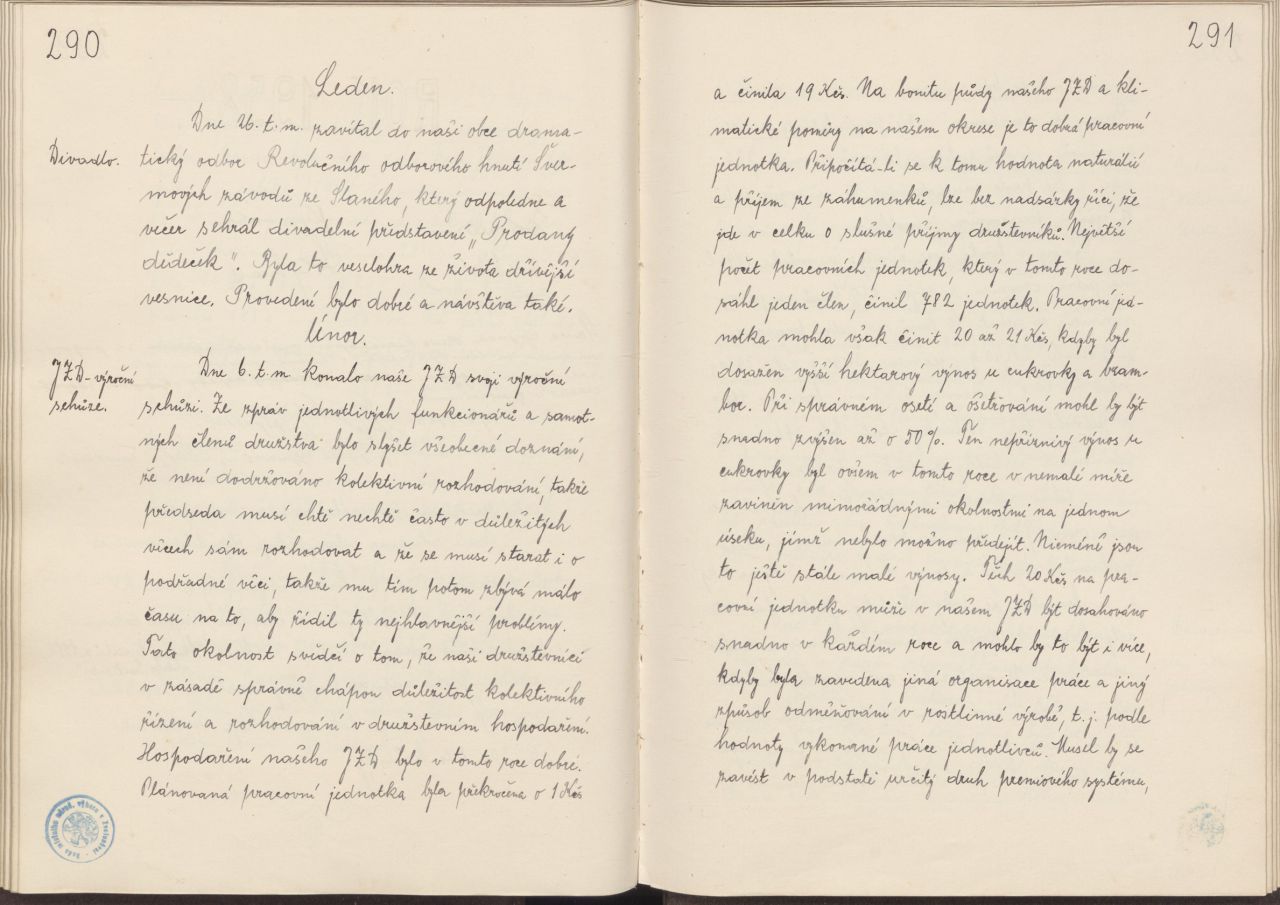 290
Leden.
Dne 26. t. m. zavítal do naši obce drama-
Divadlo.
tický odbor Revolučního odborového hnutí Šver-
mových závodů ze Slaného, který odpoledne a
večer sehrál divadelní představení „Prodaný
dědeček". Byla to veselohra ze života dřívější
vesnice. Provedení bylo dobré a návštěva také.
Únor.
JZD - výroční
schůze.
Dne 6. t. m. konalo naše JZD svoji výroční
schůzi. Ze zpráv jednotlivých funkcionářů a samot-
ných členů družstva bylo slyšet všeobecné doznání,
že není dodržováno kolektivní rozhodování, takže
předseda musí chtě nechtě často v důležitých
věcech sám rozhodovat a že se musí starat i o
podřadné věci, takže mu tím potom zbývá málo
času na to, aby řídil ty nejhlavnější problémy.
Tato okolnost svědčí o tom, že naši družstevníci
v zásadě správně chápou důležitost kolektivního
řízení a rozhodování v družstevním hospodaření.
Hospodaření našeho JZD bylo v tomto roce dobré.
Plánovaná pracovní jednotka byla překročena o 1 Kčs
291
a činila 19 Kčs. Na bonitu půdy našeho JZD a kli-
matické poměry na našem okrese je to dobrá pracovní
jednotka. Připočítá-li se k tomu hodnota naturálií
a příjem ze záhumenků, lze bez nadsázky říci, že
jde v celku o slušné příjmy družstevníků. Největší
počet pracovních jednotek, který v tomto roce do-
sáhl jeden člen, činil 782 jednotek. Pracovní jed-
notka mohla však činit 20 až 21 Kčs, kdyby byl
dosažen vyšší hektarový výnos u cukrovky a bram-
bor. Při správném osetí a ošetřování mohl by být
snadno zvýšen až o 50%. Ten nepříznivý výnos u
cukrovky byl ovšem v tomto roce v nemalé míře
zaviněn mimořádnými okolnostmi na jednom
úseku, jímž nebylo možno předejít. Nicméně jsou
to ještě stále malé výnosy. Těch 20 Kčs na pra-
covní jednotku může v našem JZD být dosahováno
snadno v každém roce a mohlo by to být i více,
kdyby byla zavedena jiná organisace práce a jiný
způsob odměňování v rostlinné výrobě, t. j. podle
hodnoty vykonané práce jednotlivců. Musel by se
zavést v podstatě určitý druh premiového systému,